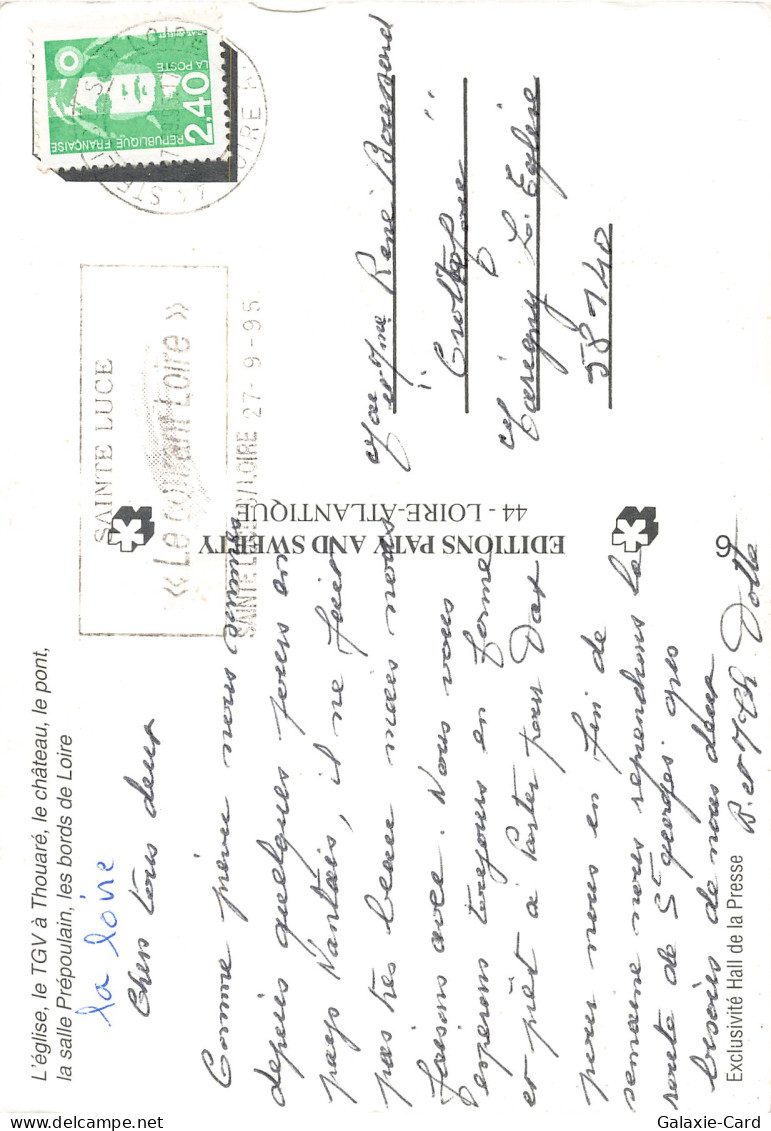 L'église, le TGV à Thouaré, le château, le pont,
la salle Prépoulain, les bords de Loire
la loire
Chers tous deux
Comme prévu nous sommes
depuis quelques jours en
pays Nantais, il ne fait
pas très beau mais nous
faisons avec. Nous vous
esperons toujours en forme
et prêt à partir pour Dax
pour nous en fin de
semaine nous reprendrons la
route de St georges gros
bisous de nous deux
B. et Th. Dotte
Exclusivité Hall de la Presse
EDITIONS PATY AND SWERTY
44 - LOIRE-ATLANTIQUE
6
SAINTE LUCE
« Le courant Loire »
SAINTE LUCE S/LOIRE 27-9-95
2,40
LA POSTE
REPUBLIQUE FRANÇAISE
et Mme René
Marigny L'Eglise
58140
Galaxie-Card